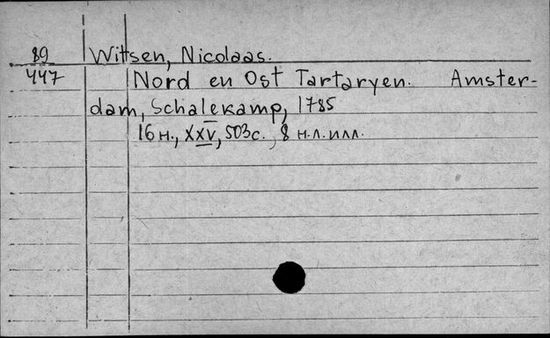 89 Witsen, Nicolaas.
447 Nord en Ost Tartaryen. Amster-
dam, Schalekamp, 1785
16 н., XXV, 503 с., 8 н.л.илл.